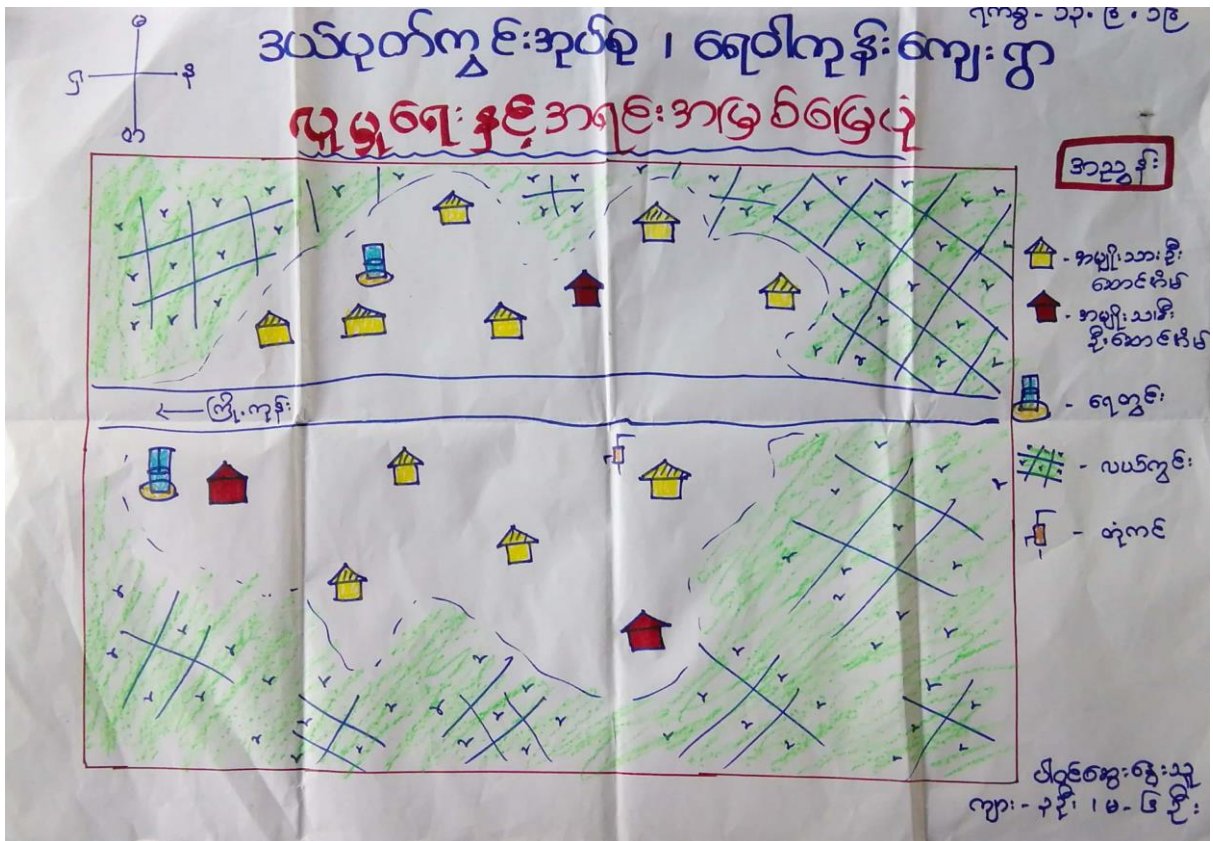 ရက်စွဲ - ၁၃.၉.၁၉
မ
ရှ န
တ
ဒယ်ပုတ်ကွင်းအုပ်စု ၊ ရေဝါကုန်းကျေးရွာ
လူမှုရေးနှင့်အရင်းအမြစ်မြေပုံ
အညွှန်း
- အမျိုးသားဦး
ဆောင်အိမ်
- အမျိုးသမီး
ဦးဆောင်အိမ်
- ရေတွင်း
- လယ်ကွင်း
- တုံကင်
← ကြို့ကုန်း
ပါဝင်ဆွေးနွေးသူ
ကျား - ၃ဦး ၊ မ - ၆ ဦး